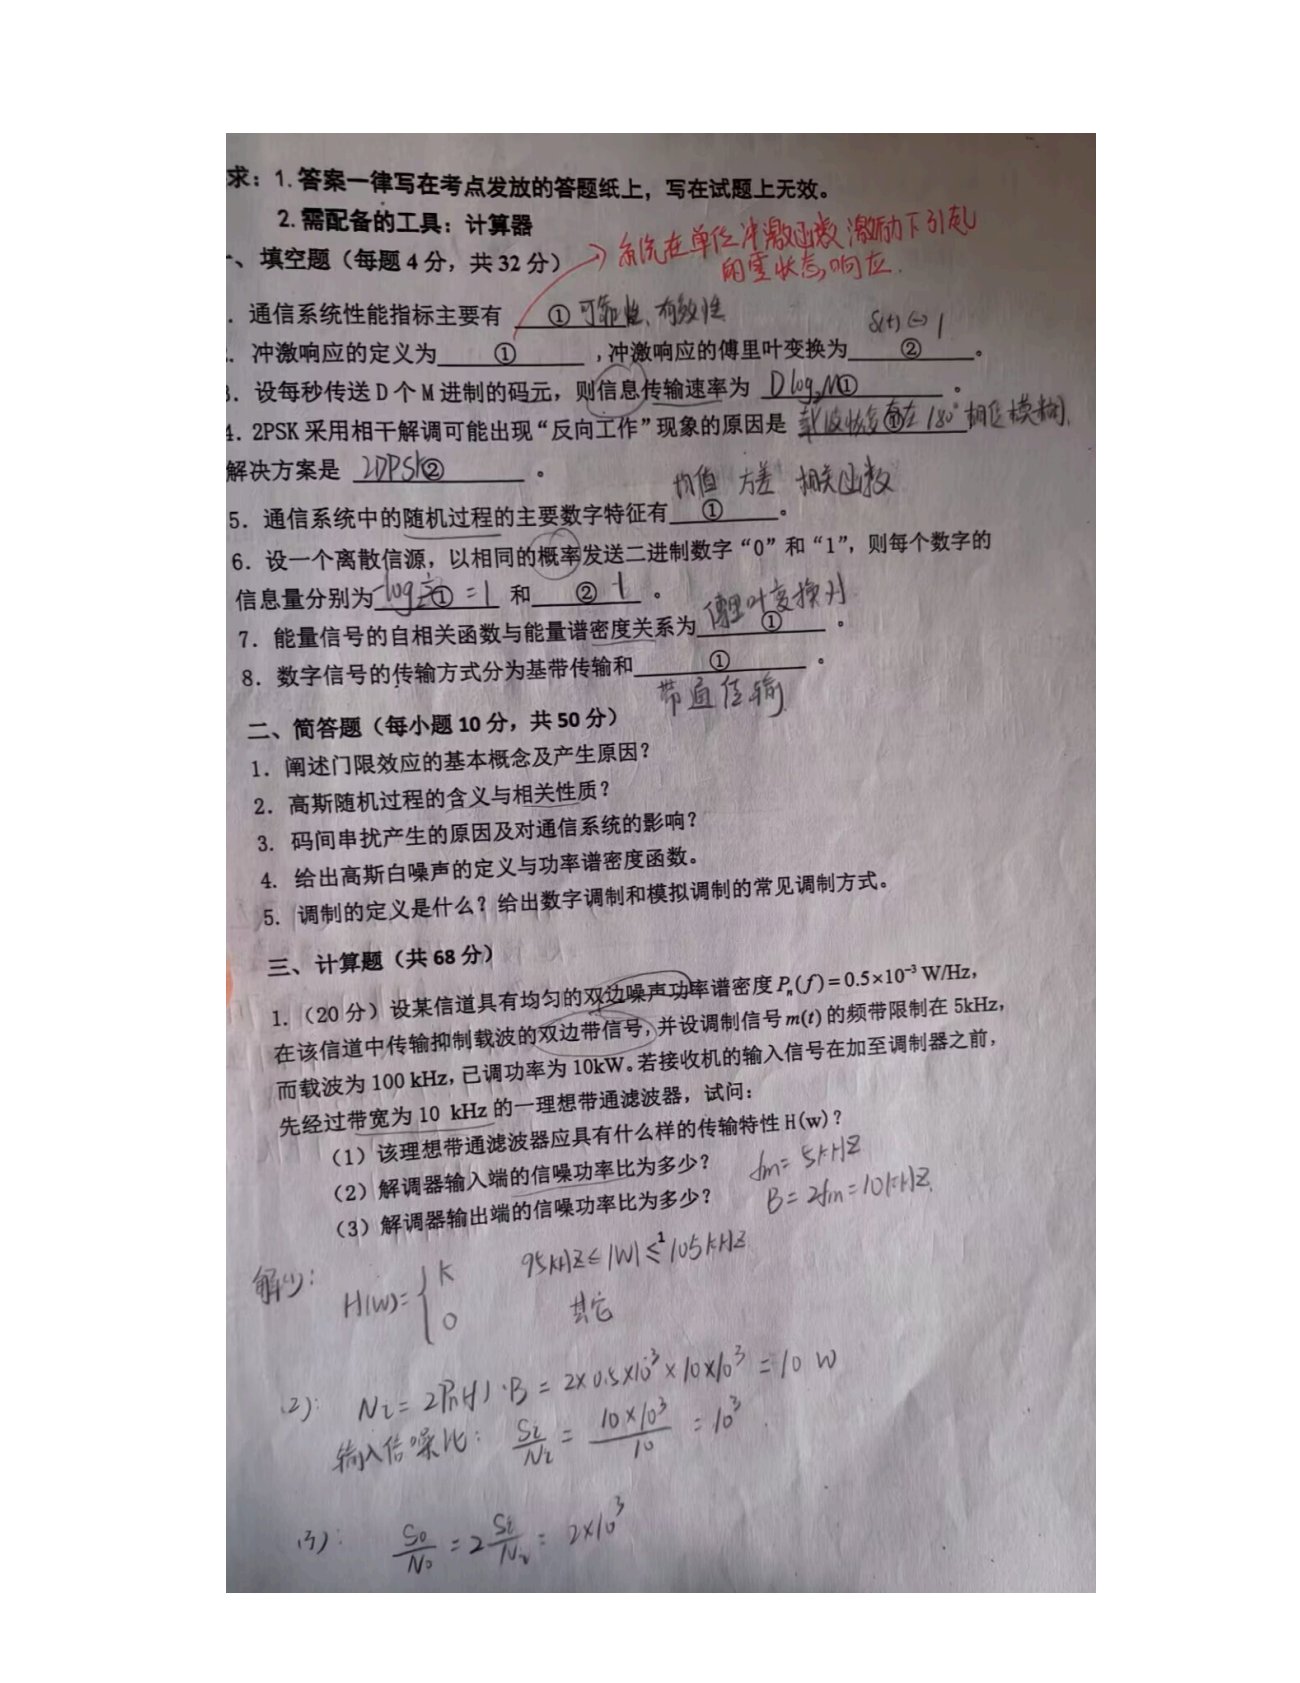 求：1.答案一律写在考点发放的答题纸上，写在试题上无效。
2.需配备的工具：计算器
一、填空题（每题 4 分，共 32 分）
系统在单位冲激函数激励下引起
的零状态响应.
. 通信系统性能指标主要有 ① 可靠性、有效性
δ(t)↔1
. 冲激响应的定义为 ① ,冲激响应的傅里叶变换为 ② 。
3. 设每秒传送 D 个 M 进制的码元，则信息传输速率为 Dlog₂M① 。
4. 2PSK 采用相干解调可能出现“反向工作”现象的原因是 载波恢复①存在180°相位模糊,
解决方案是 2DPSK② 。
均值 方差 相关函数
5. 通信系统中的随机过程的主要数字特征有 ① 。
6. 设一个离散信源，以相同的概率发送二进制数字“0”和“1”，则每个数字的
信息量分别为 -log₂½① =1 和 ② 1 。
傅里叶变换对
7. 能量信号的自相关函数与能量谱密度关系为 ① 。
8. 数字信号的传输方式分为基带传输和 ① 。
带通传输
二、简答题（每小题 10 分，共 50 分）
1. 阐述门限效应的基本概念及产生原因？
2. 高斯随机过程的含义与相关性质？
3. 码间串扰产生的原因及对通信系统的影响？
4. 给出高斯白噪声的定义与功率谱密度函数。
5. 调制的定义是什么？给出数字调制和模拟调制的常见调制方式。
三、计算题（共 68 分）
1.（20 分）设某信道具有均匀的双边噪声功率谱密度 Pₙ(f)=0.5×10⁻³ W/Hz,
在该信道中传输抑制载波的双边带信号，并设调制信号 m(t) 的频带限制在 5kHz，
而载波为 100 kHz，已调功率为 10kW。若接收机的输入信号在加至调制器之前，
先经过带宽为 10 kHz 的一理想带通滤波器，试问：
（1）该理想带通滤波器应具有什么样的传输特性 H(w)？
（2）解调器输入端的信噪功率比为多少？
fm=5kHZ
（3）解调器输出端的信噪功率比为多少？
B=2fm=10kHZ.
1
解(1): H(W)={K 95kHZ≤|W|≤105kHZ
0 其它
(2): Ni=2Pn(f)·B=2×0.5×10⁻³×10×10³=10 W
输入信噪比: Si/Ni=10×10³/10=10³.
(3): So/No=2Si/Ni=2×10³